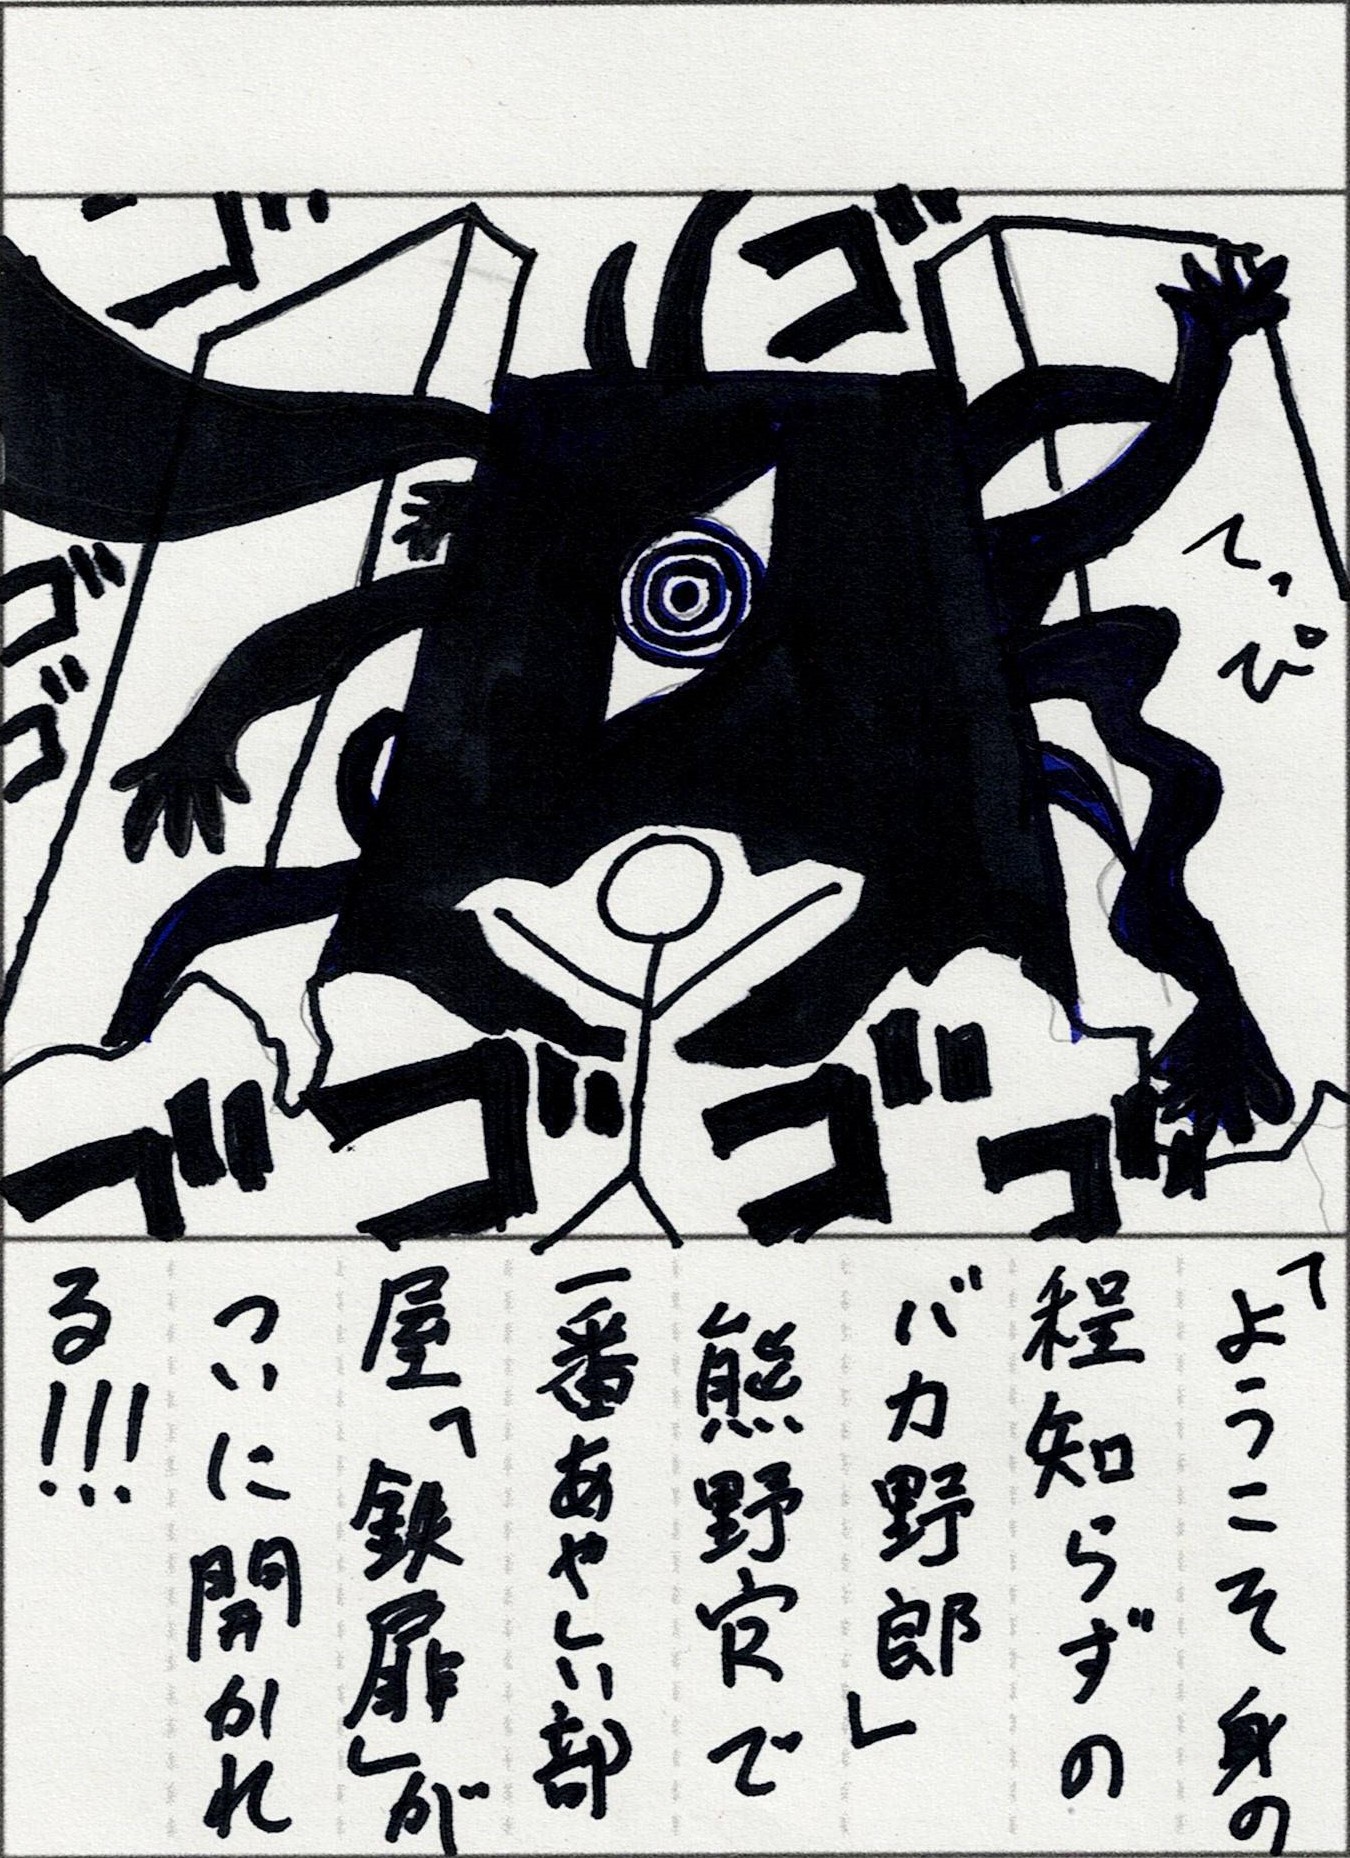 ゴゴ
ゴ
ゴ
ゴ
てっぴ
ゴゴゴゴ
「ようこそ身の
程知らずの
バカ野郎」
熊野穴で
一番あやしい部
屋「鉄扉」が
ついに開かれ
る!!!